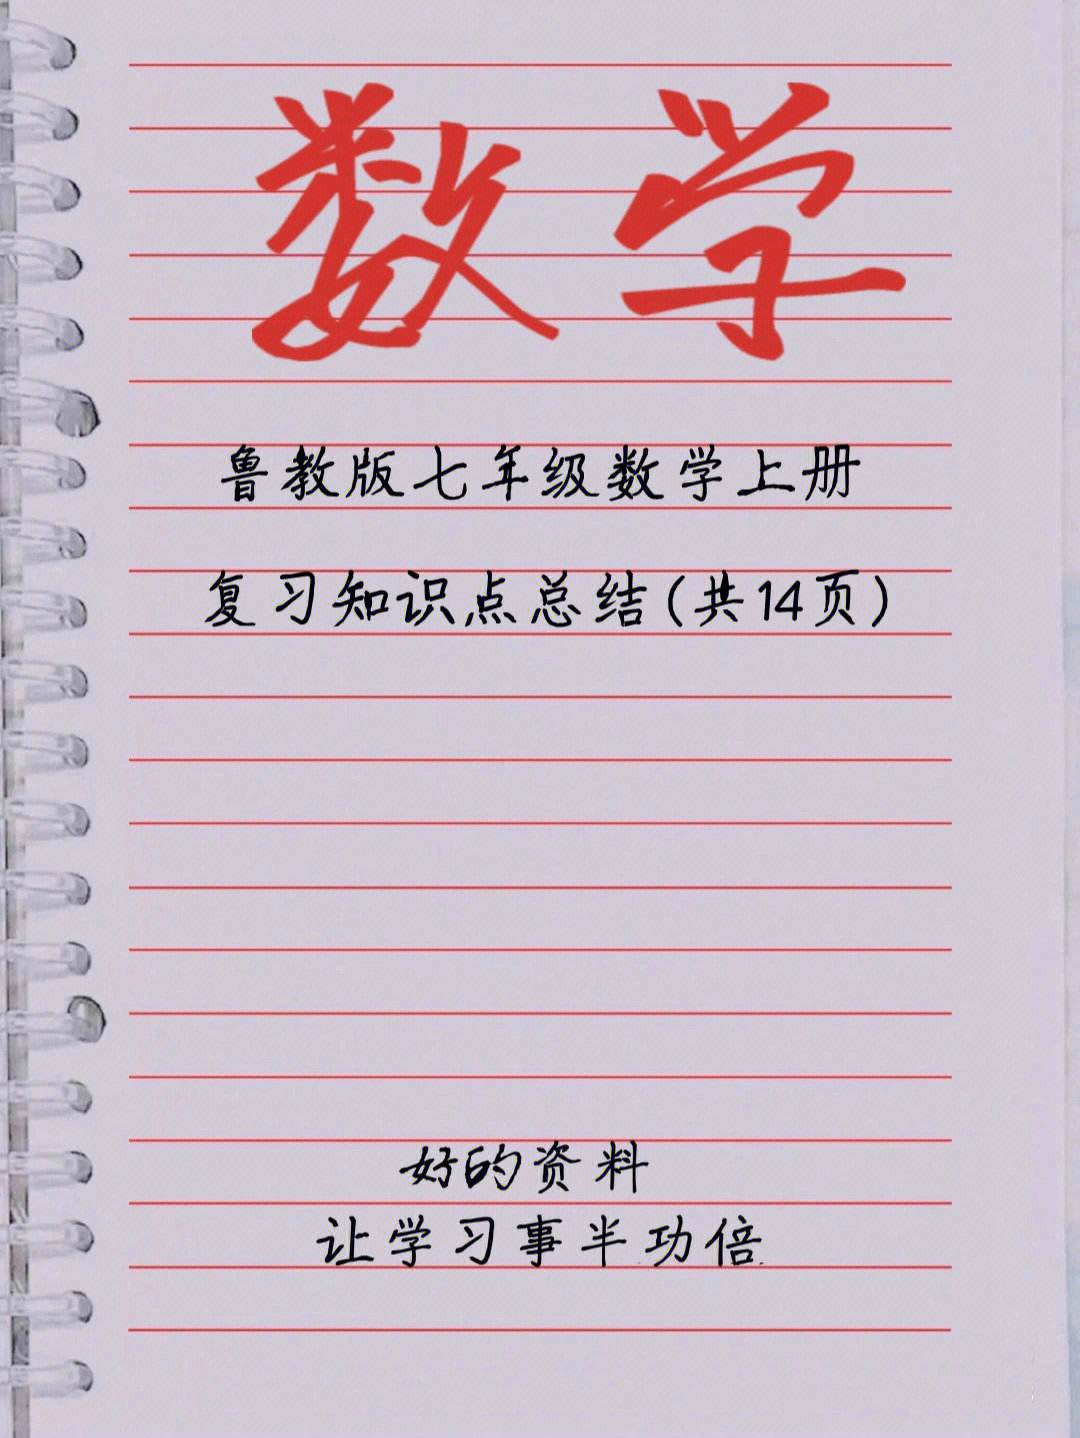 数学
鲁教版七年级数学上册
复习知识点总结(共14页)
好的资料
让学习事半功倍